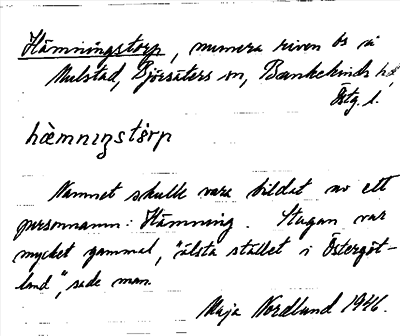 Hämningstorp, numera riven bs å
Mulstad, Björsäters sn, Bankekinds hd,
Östg. l.
hæ̀mnıŋstårp
Namnet skulle vara bildat av ett
personnamn: Hämning. Stugan var
mycket gammal, "älsta stället i Östergöt-
land", sade man.
Maja Nordlund 1946.